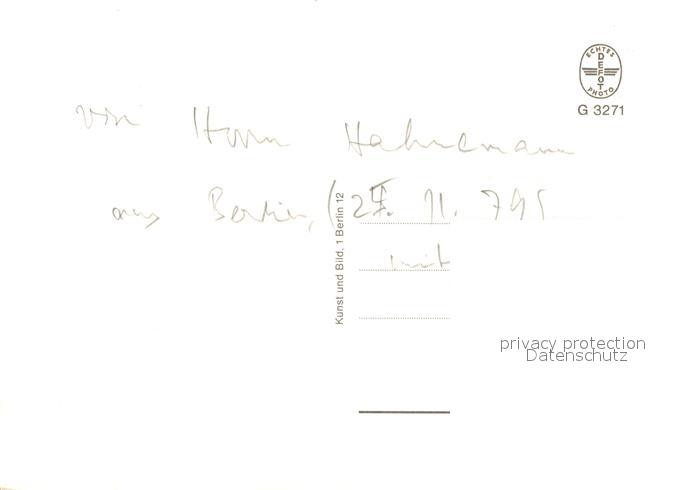 ECHTES
DEFOT
PHOTO
G 3271
von Herrn Hahnemann
aus Berlin, (
11.
mit
Kunst und Bild. 1 Berlin 12
privacy protection
Datenschutz